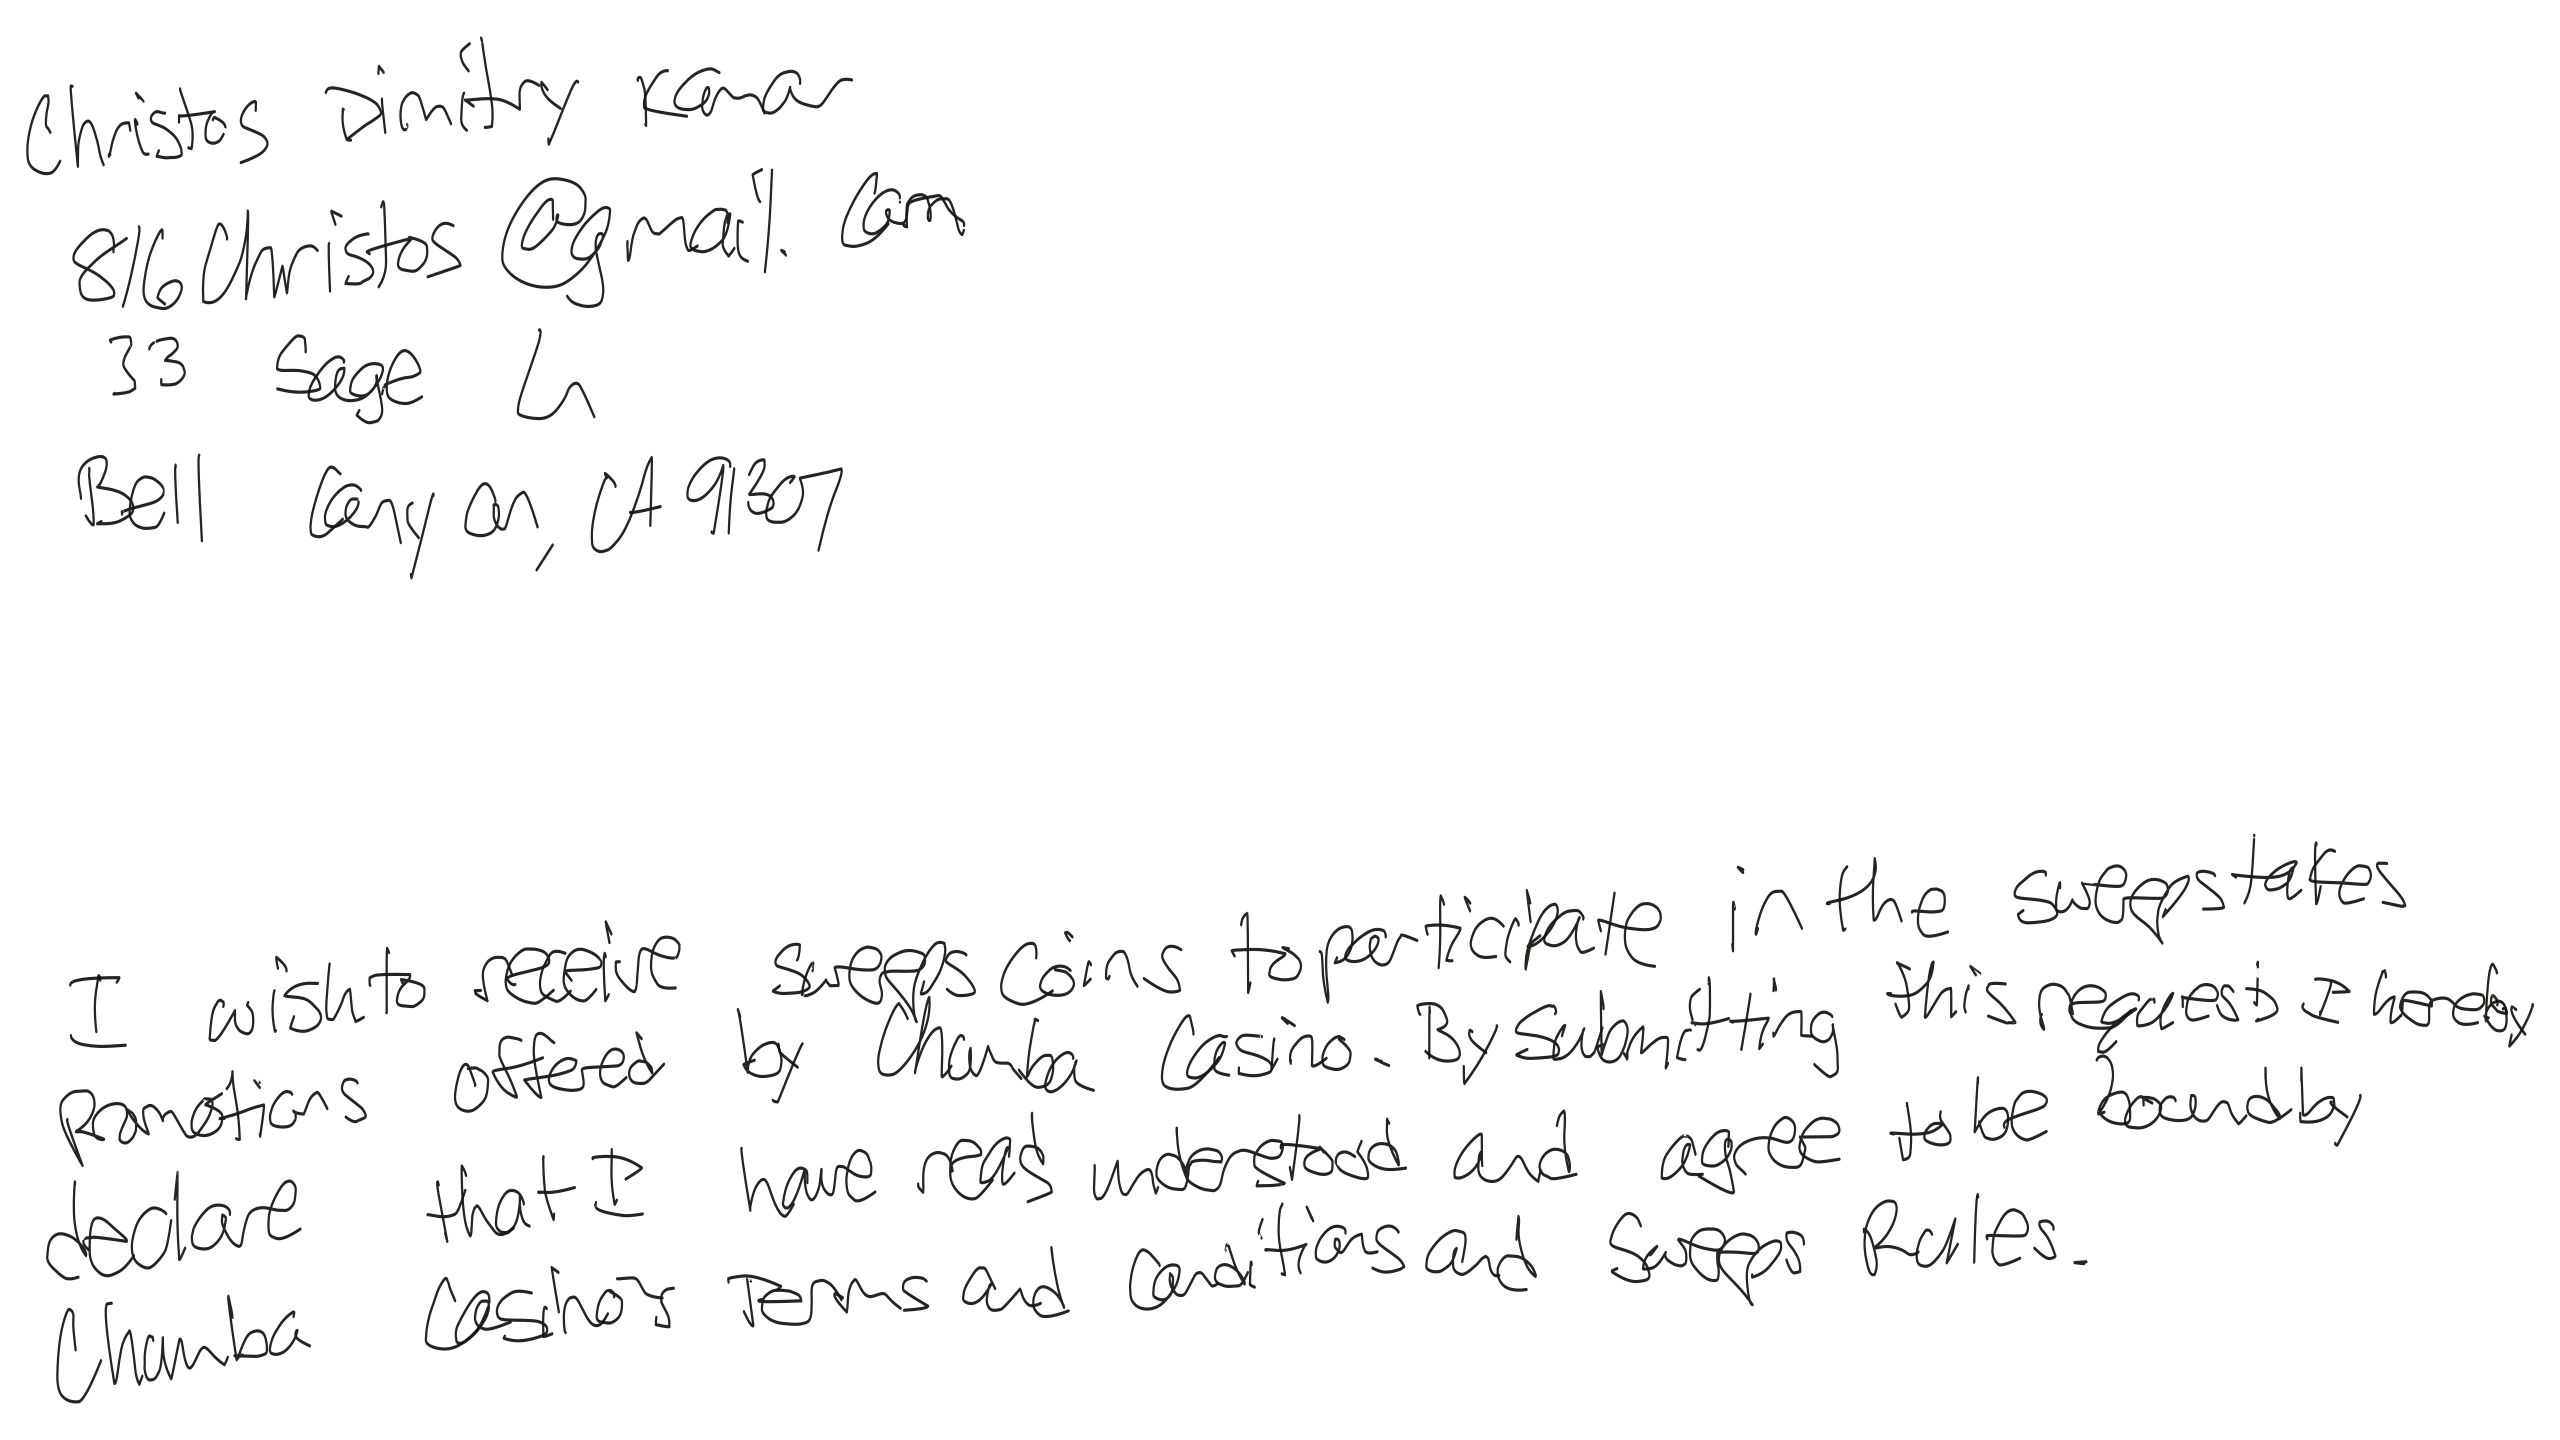 Christos Dimitry Kanar
816Christos@gmail.com
33 Sage Ln
Bell Canyon, CA 91307
I wish to receive sweeps coins to participate in the sweepstakes
Promotions offered by Chumba Casino. By submitting this request I hereby
declare that I have read understood and agree to be bound by
Chumba Casino's Terms and Conditions and Sweeps Rules.